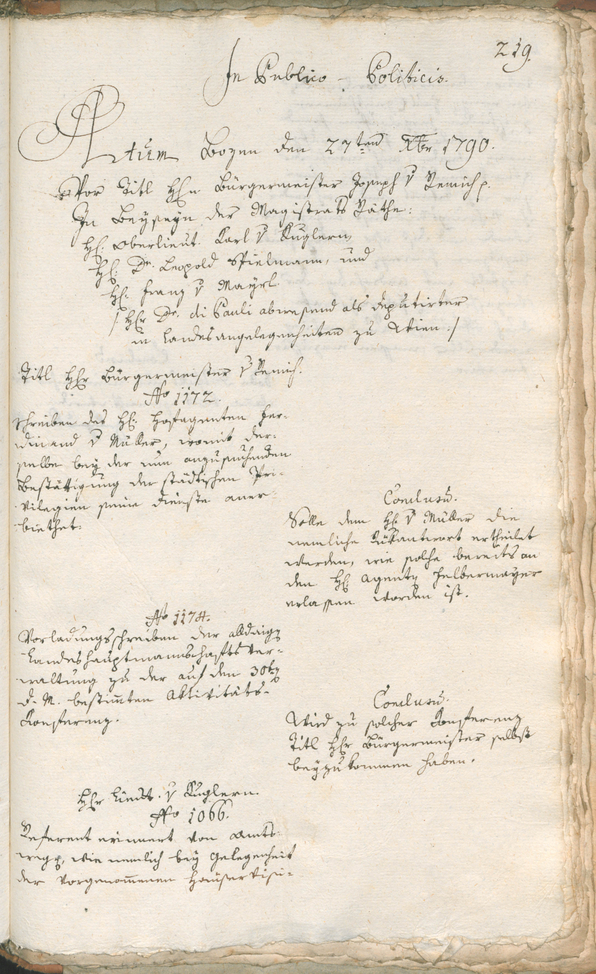 219.
In Publico - Politicis.
Actum Bozen den 27ten Xbr 1790.
Vor Titl Hhn. Bürgermeister Joseph v Remich p.
In Beyseyn der Magistrats Räthe:
Hh. Oberlieut. Karl v Kuglern,
Hh. Dr. Leopold Spielmann, und
Hh. Franz v Mayrl.
/: Hhr Dr. di Pauli abwesend als Deputirter
in Landesangelegenheiten zu Wien :/
Titl Hhr Bürgermeister v Remich.
No 1172.
Schreiben des Hh. Hofagenten Fer-
dinand v Müller, womit der-
selbe bey der nun anzusuchenden
Bestättigung der städtischen Pri-
vilegien seine Dienste aner-
biethet.
Conclusu.
Solle dem Hh. v Müller die
nemliche Rükantwort ertheilet
werden, wie solche bereits an
den Hh. Agentz Helbermayer
erlassen worden ist.
No 1174.
Vorladungsschreiben der alldaig
Landeshauptmannschafts Ver-
waltung zu der auf den 30ten
d. M. bestimten Aktivitäts-
Konferenz.
Conclusu.
Wird zu solcher Konferenz
Titl Hhr Bürgermeister selbst
beyzukommen haben.
Hhr Lieut. v Kuglern.
No 1066.
Referent erinnert von Amts-
wegz, wie nemlich bey Gelegenheit
der vorgenommenen Häuser Visi-